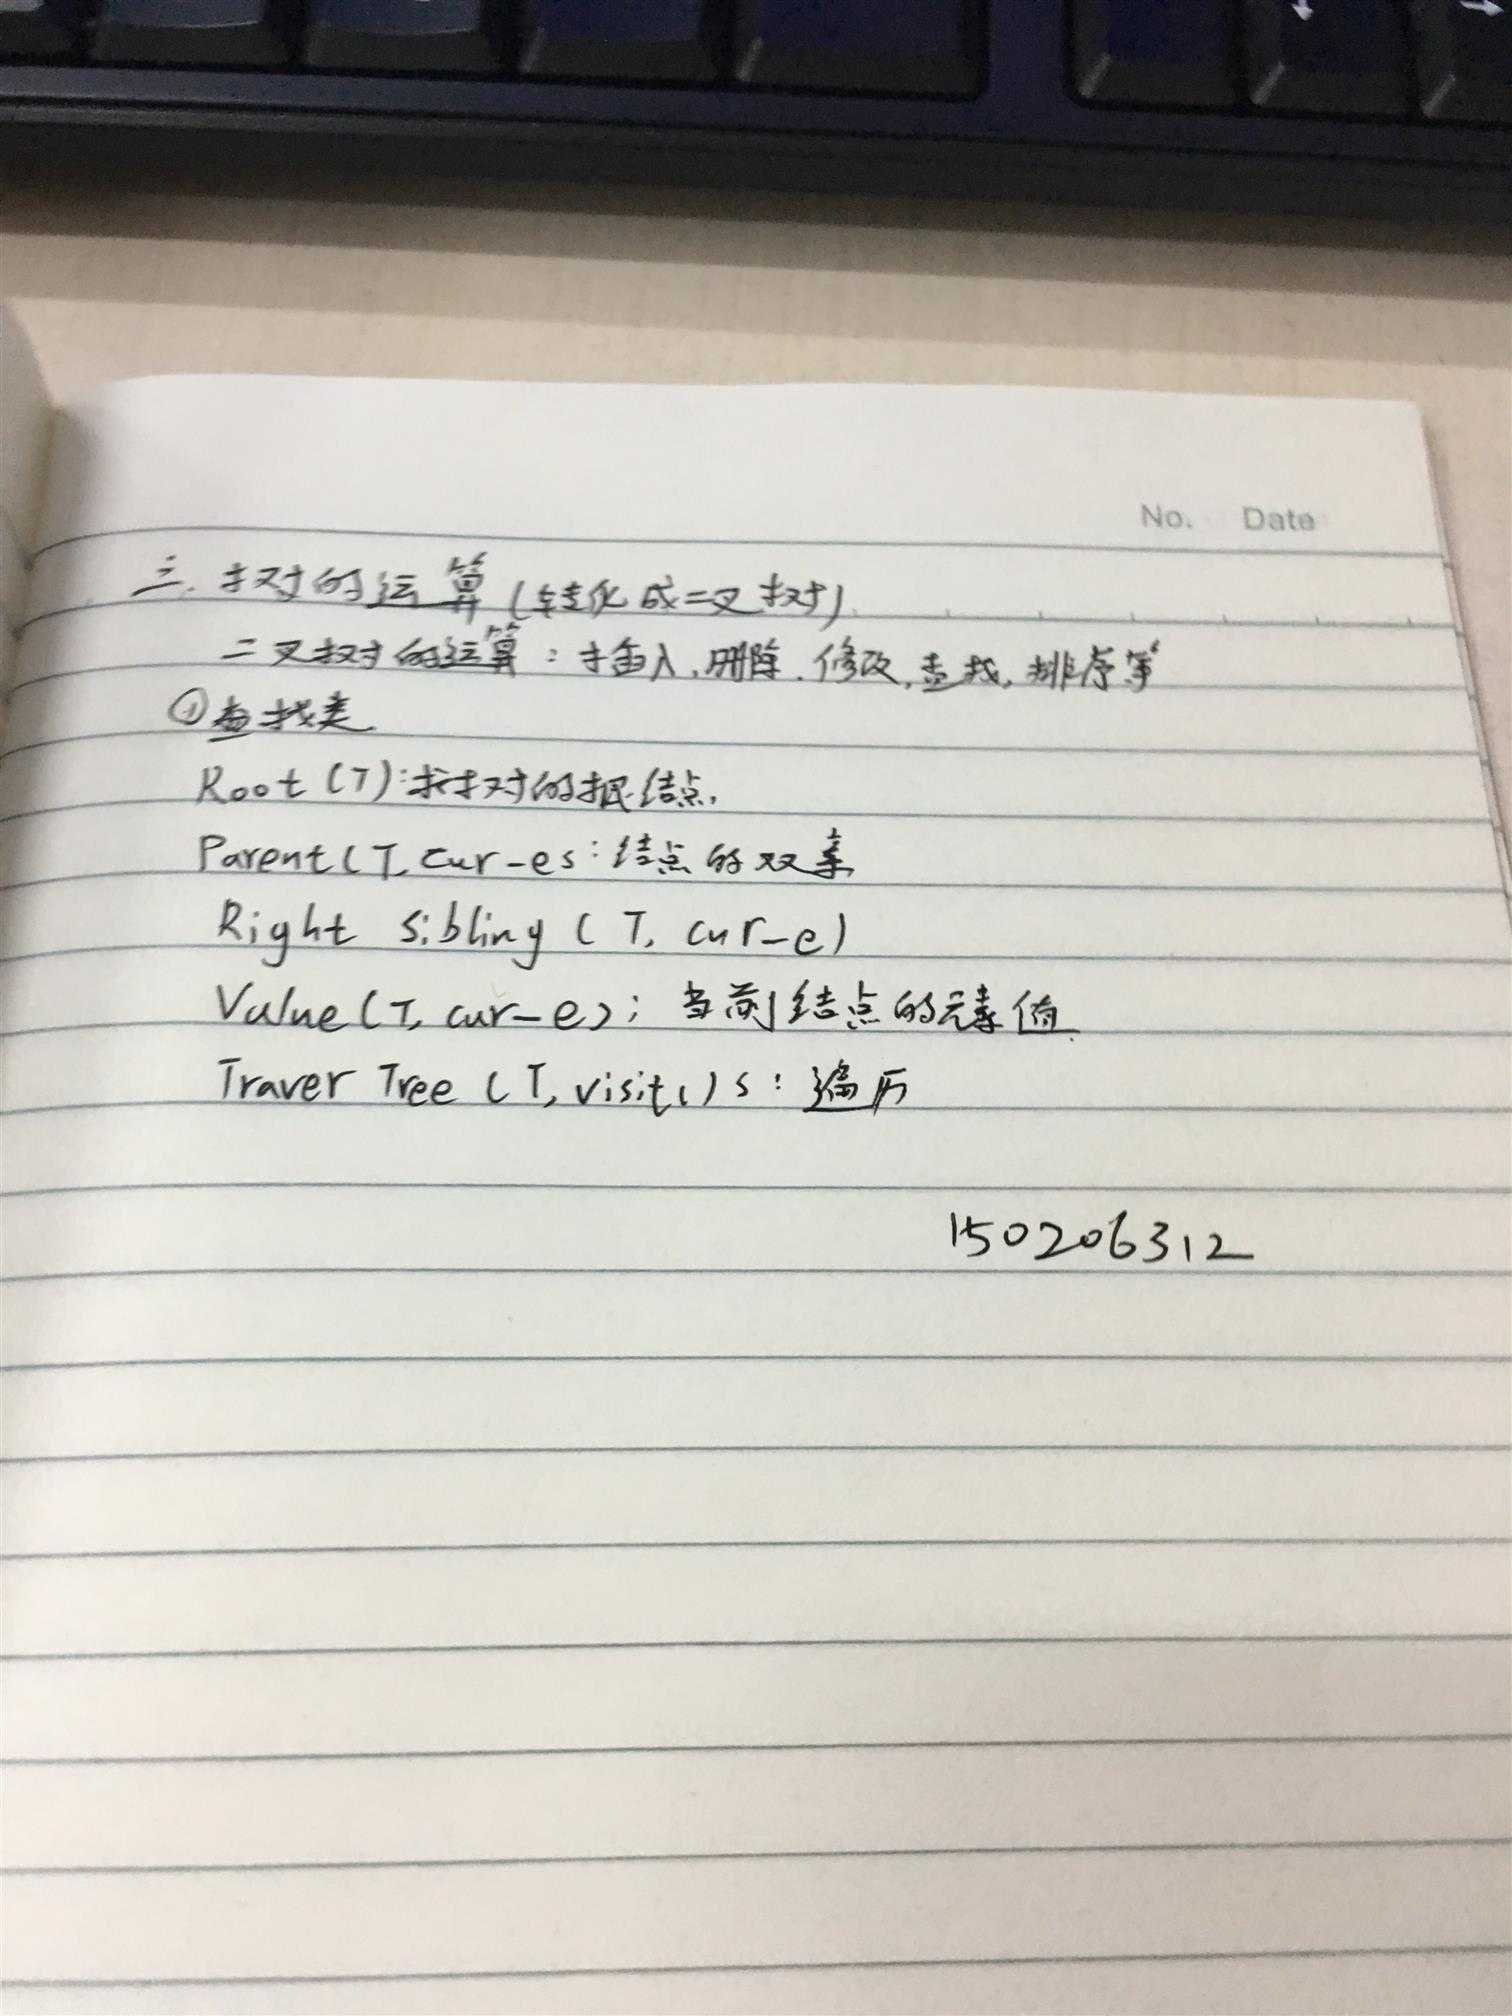 No. Date
三. 树的运算(转化成二叉树)
二叉树的运算：插入、删除、修改、查找、排序等
①查找类
Root(T):求树的根结点.
Parent(T, cur-es:结点的双亲
Right sibling (T, cur-e)
Value(T, cur-e); 当前结点的元素值.
Traver Tree (T, visit()s:遍历
150206312